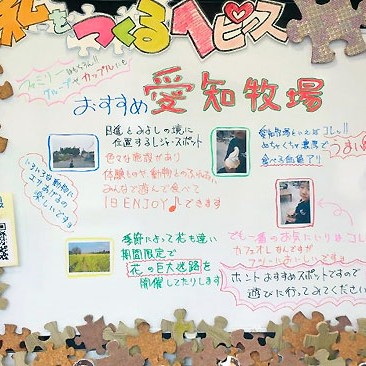 私をつくるヘピース
ファミリーはもちろん!!
グループやカップルにも
おすすめ 愛知牧場
日進とみよしの境に
位置するレジャースポット
色々な施設があり
体験ものや、動物とのふれあい
みんなで遊んで食べて
1日ENJOY♪できます
愛知牧場といえばコレ!!
めちゃくちゃ濃厚で
食べる価値アリ
うまい
いろいろな動物に
エサあげるの
楽しいですよ
季節によって花も違い
期間限定で
花の巨大迷路を
開催してたりします
でも一番のお気に入りはコレ
カフェオレなんですが
おいしいです
ホントおすすめスポットですので
遊びに行ってみてください